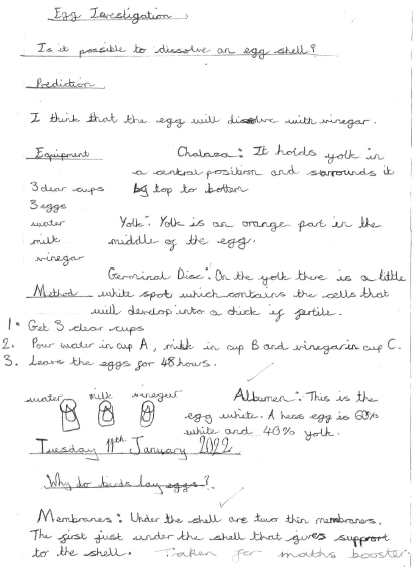 Egg Investigation.
Is it possible to dissolve an egg shell?
Prediction
I think that the egg will dissolve with vinegar.
Equipment
3 clear cups
3 eggs
water
milk
vinegar
Chalaza: It holds yolk in
a central position and surrounds it
by top to bottom
Yolk: Yolk is an orange part in the
middle of the egg.
Germinal Disc: On the yolk there is a little
white spot which contains the cells that
will develop into a chick if fertile.
Method
1. Get 3 clear cups
2. Pour water in cup A, milk in cup B and vinegar in cup C.
3. Leave the eggs for 48 hours.
water milk vinegar
A B C
Albumen: This is the
egg white. A hens egg is 60%
white and 40% yolk.
Tuesday 11th January 2022
Why do birds lay eggs?
Membranes: Under the shell are two thin membranes.
The first just under the shell that gives support
to the shell. Taken for maths booster